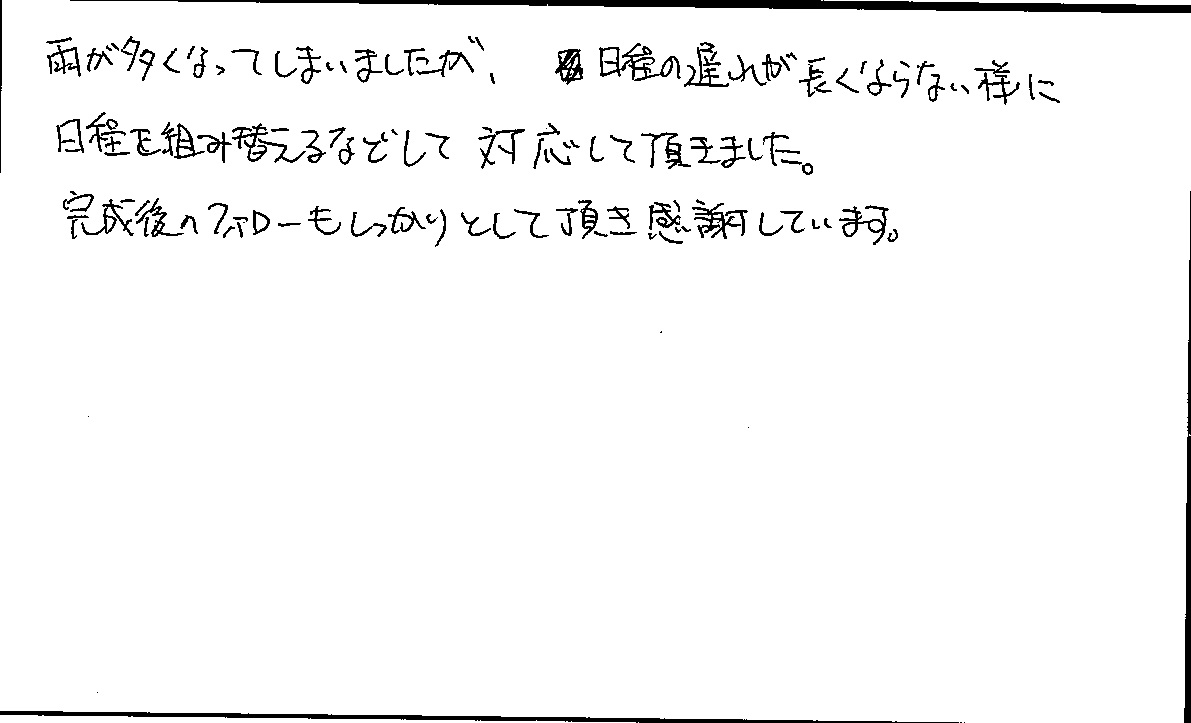 雨が多くなってしまいましたが、日程の遅れが長くならない様に
日程を組み替えるなどして対応して頂きました。
完成後のフォローもしっかりとして頂き感謝しています。